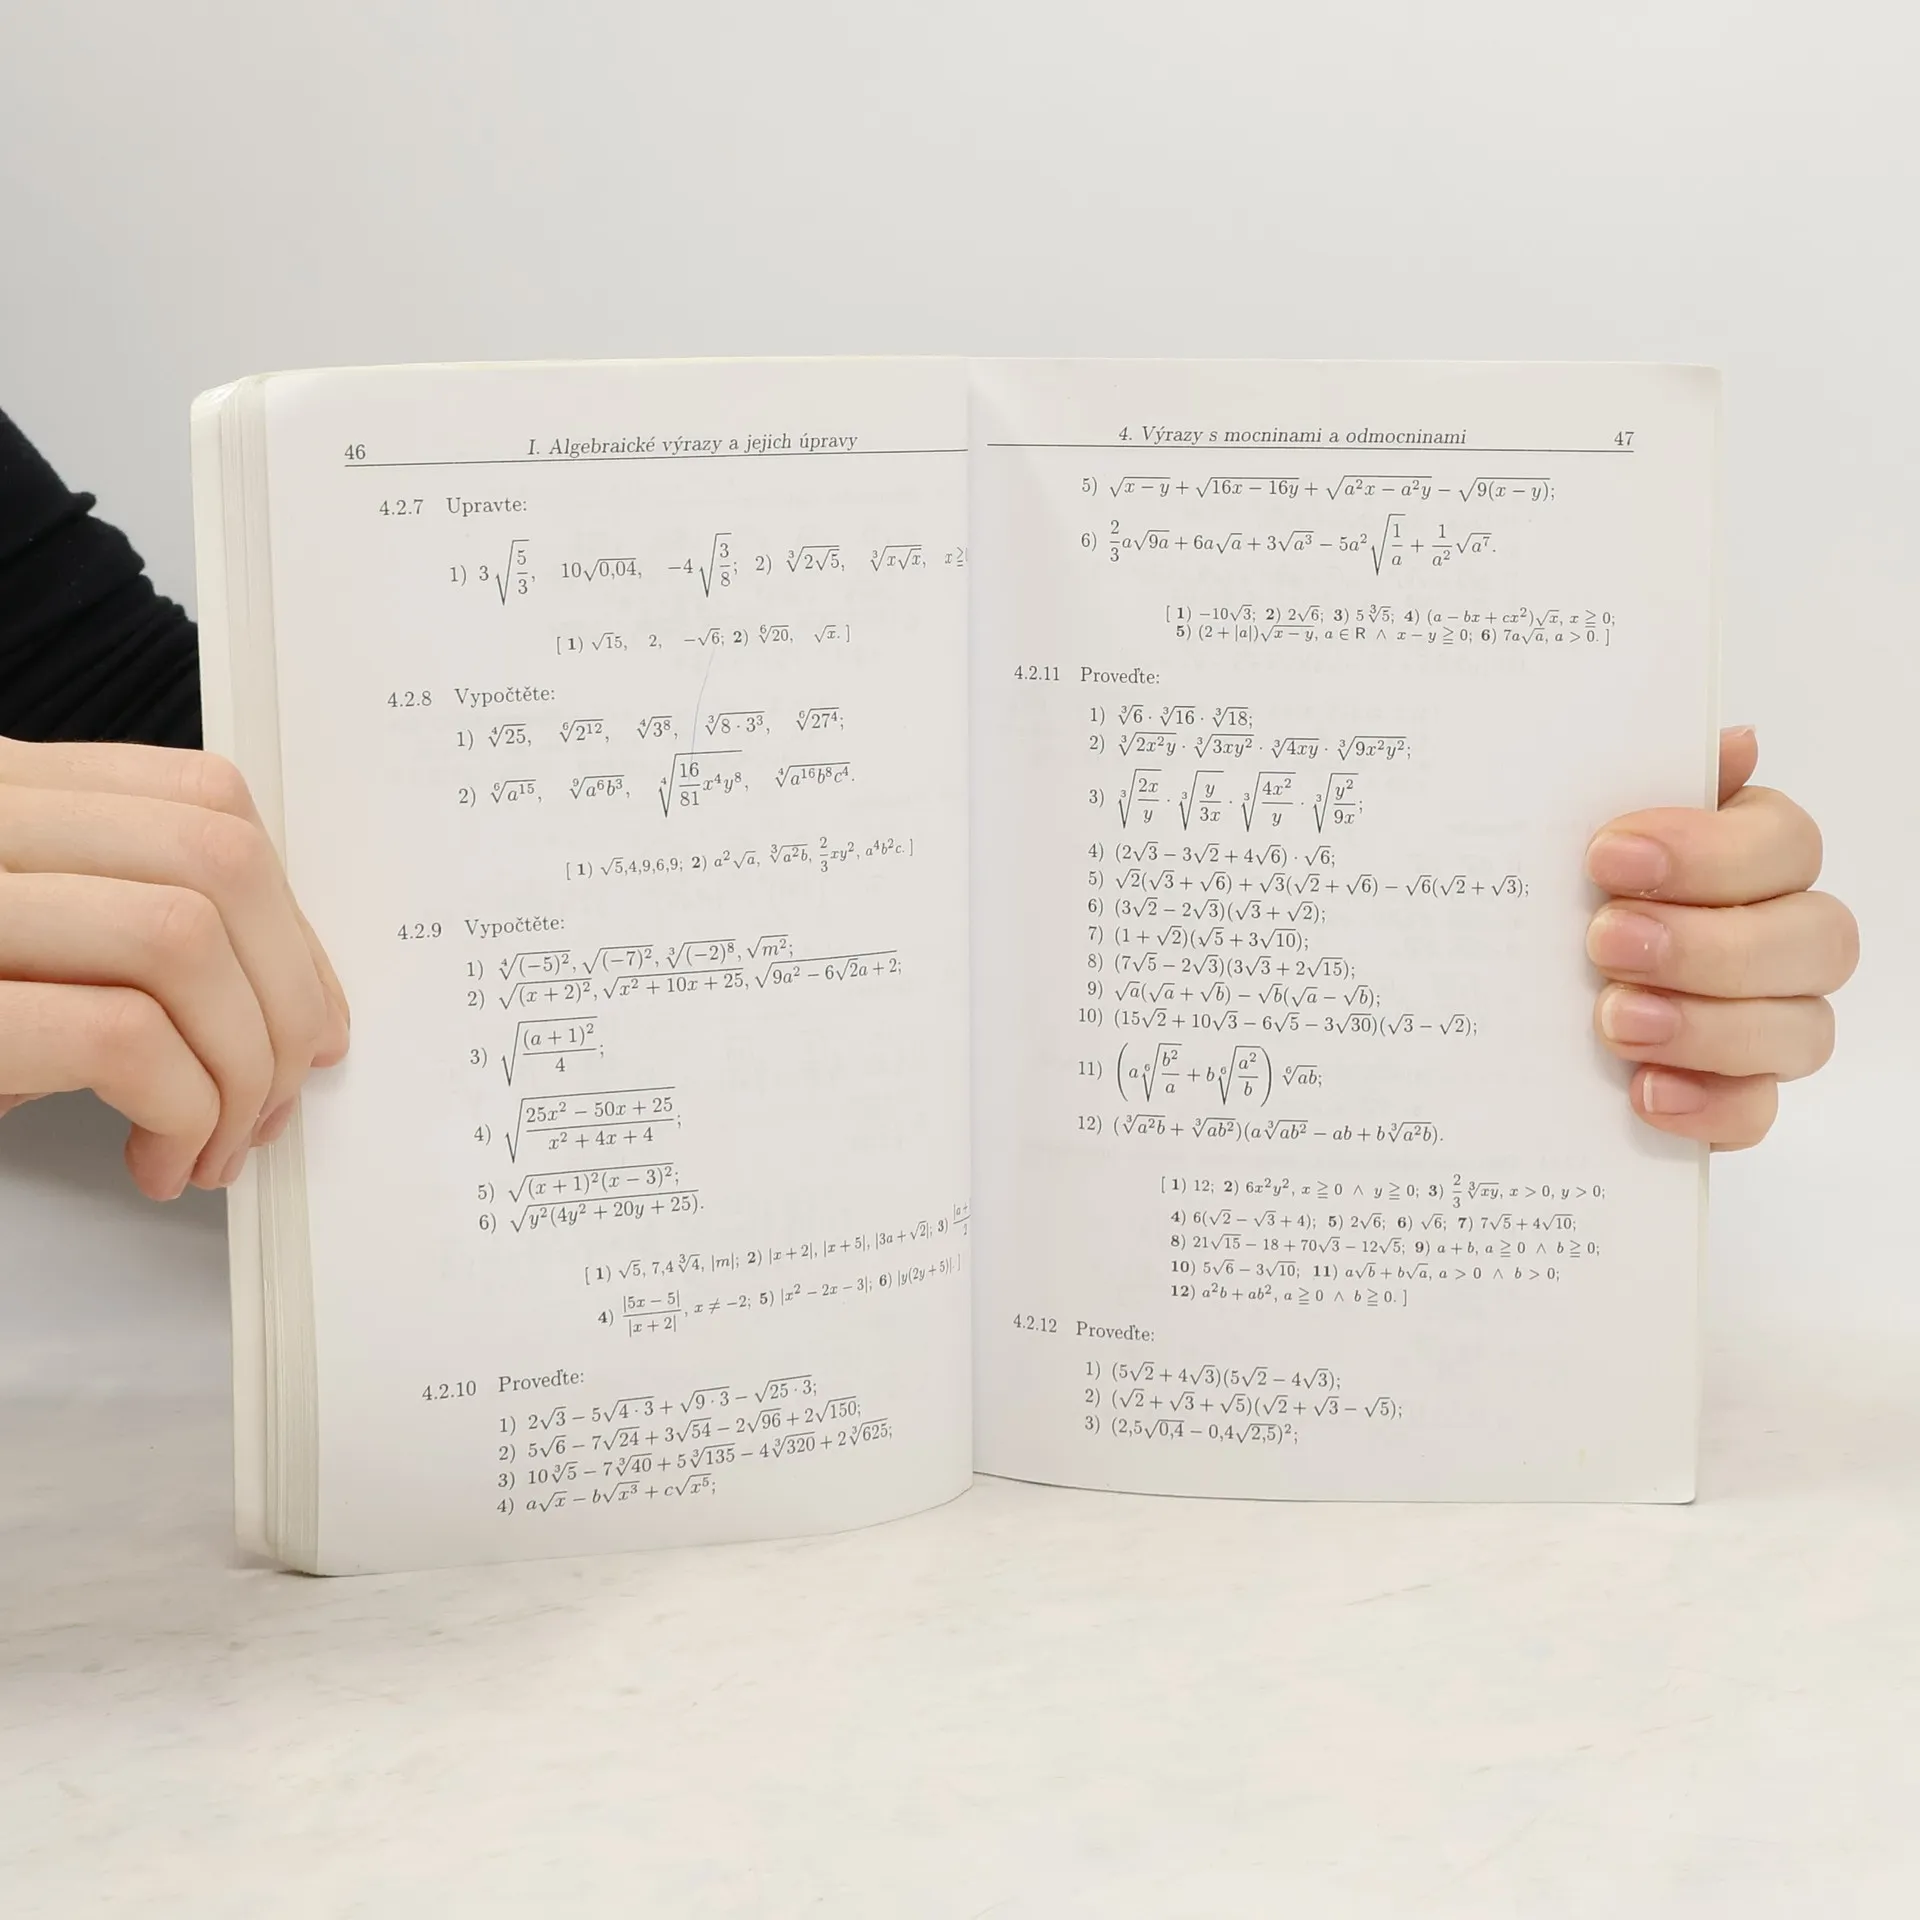 46 I. Algebraické výrazy a jejich úpravy
4.2.7 Upravte:
1) 3√(5/3), 10√0,04, −4√(3/8); 2) ∛(2√5), ∛(x√x), x ≧
[ 1) √15, 2, −√6; 2) ⁶√20, √x. ]
4.2.8 Vypočtěte:
1) ⁴√25, ⁶√2¹², ⁴√3⁸, ∛(8 · 3³), ⁶√27⁴;
2) ⁶√a¹⁵, ⁹√(a⁶b³), ⁴√((16/81)x⁴y⁸), ⁴√(a¹⁶b⁸c⁴).
[ 1) √5,4,9,6,9; 2) a²√a, ∛(a²b), (2/3)xy², a⁴b²c. ]
4.2.9 Vypočtěte:
1) ⁴√(−5)², √(−7)², ∛(−2)⁸, √m²;
2) √(x + 2)², √(x² + 10x + 25), √(9a² − 6√2a + 2);
3) √((a + 1)²/4);
4) √((25x² − 50x + 25)/(x² + 4x + 4));
5) √((x + 1)²(x − 3)²);
6) √(y²(4y² + 20y + 25)).
[ 1) √5, 7,4∛4, |m|; 2) |x + 2|, |x + 5|, |3a + √2|; 3) |a+ / 2
4) |5x − 5|/|x + 2|, x ≠ −2; 5) |x² − 2x − 3|; 6) |y(2y + 5)|. ]
4.2.10 Proveďte:
1) 2√3 − 5√(4 · 3) + √(9 · 3) − √(25 · 3);
2) 5√6 − 7√24 + 3√54 − 2√96 + 2√150;
3) 10∛5 − 7∛40 + 5∛135 − 4∛320 + 2∛625;
4) a√x − b√x³ + c√x⁵;
4. Výrazy s mocninami a odmocninami 47
5) √(x − y) + √(16x − 16y) + √(a²x − a²y) − √(9(x − y));
6) (2/3)a√(9a) + 6a√a + 3√a³ − 5a²√(1/a) + (1/a²)√a⁷.
[ 1) −10√3; 2) 2√6; 3) 5∛5; 4) (a − bx + cx²)√x, x ≧ 0;
5) (2 + |a|)√(x − y), a ∈ R ∧ x − y ≧ 0; 6) 7a√a, a > 0. ]
4.2.11 Proveďte:
1) ∛6 · ∛16 · ∛18;
2) ∛(2x²y) · ∛(3xy²) · ∛(4xy) · ∛(9x²y²);
3) ∛(2x/y) · ∛(y/3x) · ∛(4x²/y) · ∛(y²/9x);
4) (2√3 − 3√2 + 4√6) · √6;
5) √2(√3 + √6) + √3(√2 + √6) − √6(√2 + √3);
6) (3√2 − 2√3)(√3 + √2);
7) (1 + √2)(√5 + 3√10);
8) (7√5 − 2√3)(3√3 + 2√15);
9) √a(√a + √b) − √b(√a − √b);
10) (15√2 + 10√3 − 6√5 − 3√30)(√3 − √2);
11) (a ⁶√(b²/a) + b ⁶√(a²/b)) ⁶√(ab);
12) (∛(a²b) + ∛(ab²))(a∛(ab²) − ab + b∛(a²b)).
[ 1) 12; 2) 6x²y², x ≧ 0 ∧ y ≧ 0; 3) (2/3)∛(xy), x > 0, y > 0;
4) 6(√2 − √3 + 4); 5) 2√6; 6) √6; 7) 7√5 + 4√10;
8) 21√15 − 18 + 70√3 − 12√5; 9) a + b, a ≧ 0 ∧ b ≧ 0;
10) 5√6 − 3√10; 11) a√b + b√a, a > 0 ∧ b > 0;
12) a²b + ab², a ≧ 0 ∧ b ≧ 0. ]
4.2.12 Proveďte:
1) (5√2 + 4√3)(5√2 − 4√3);
2) (√2 + √3 + √5)(√2 + √3 − √5);
3) (2,5√0,4 − 0,4√2,5)²;